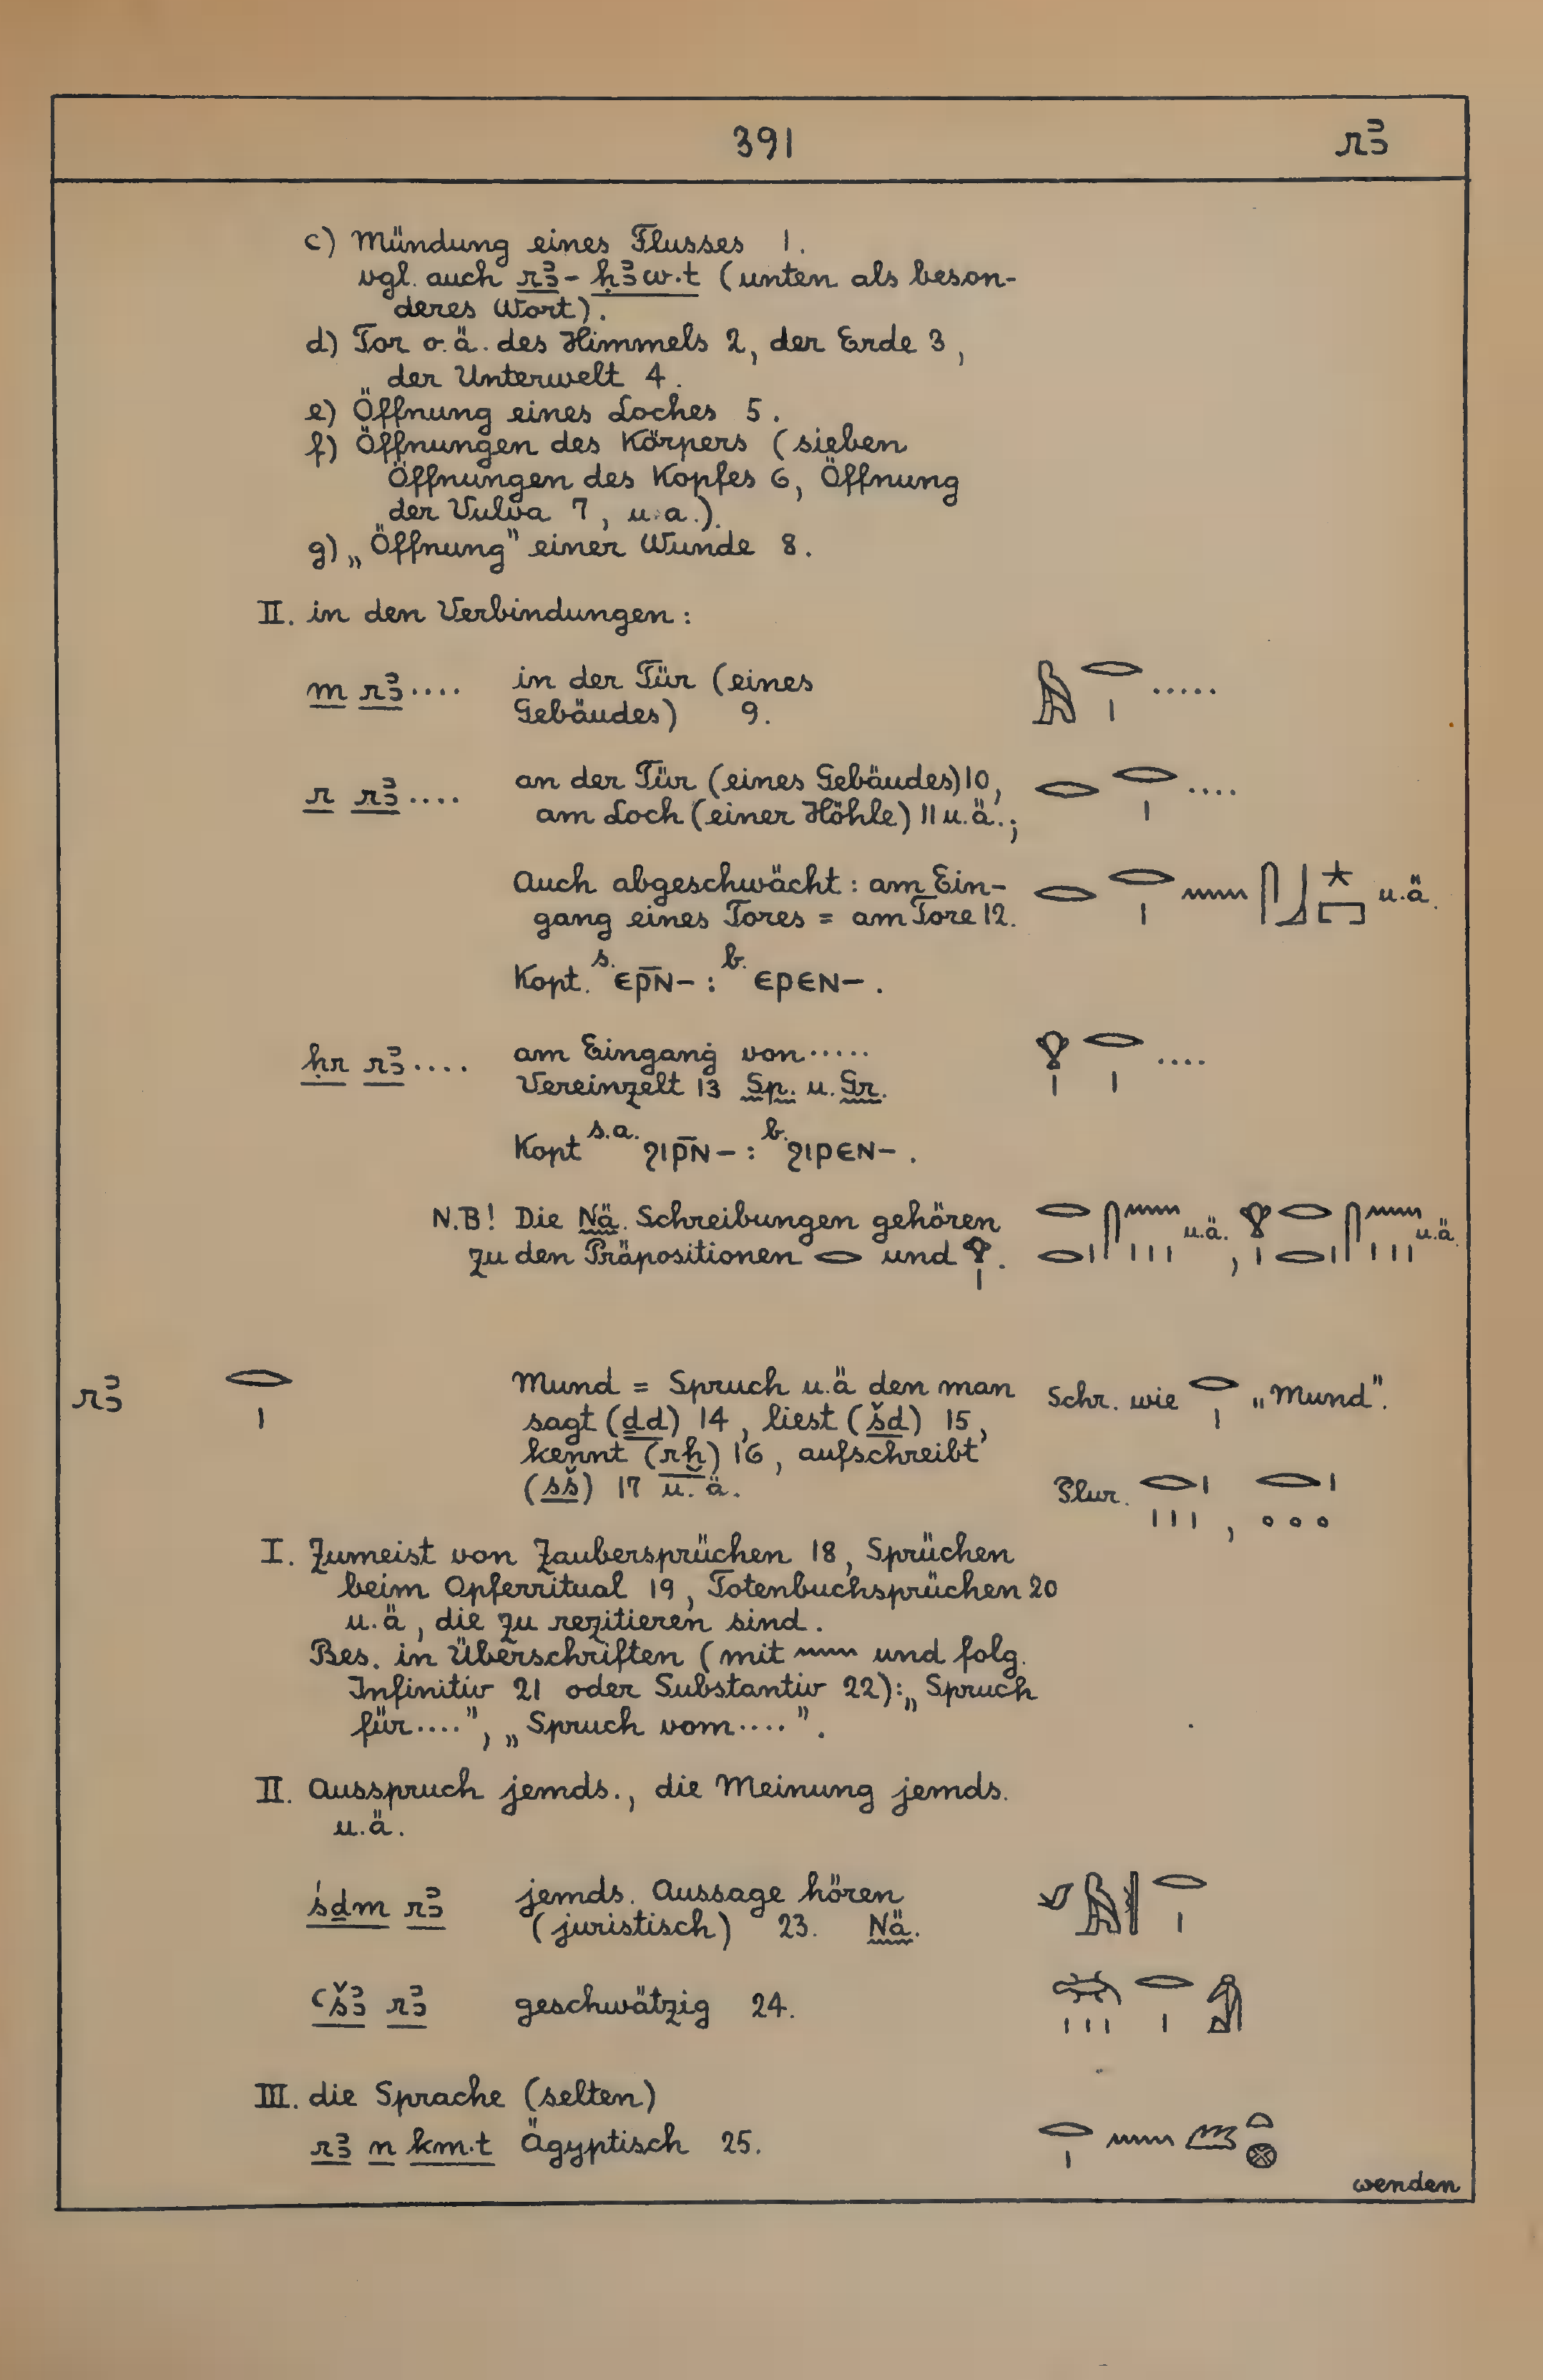 391 rꜣ
c) Mündung eines Flusses 1.
vgl. auch rꜣ-ḥꜣw.t (unten als beson-
deres Wort).
d) Tor o.ä. des Himmels 2, der Erde 3,
der Unterwelt 4.
e) Öffnung eines Loches 5.
f) Öffnungen des Körpers (sieben
Öffnungen des Kopfes 6, Öffnung
der Vulva 7, u.a.).
g) „Öffnung" einer Wunde 8.
II. in den Verbindungen:
m rꜣ.... in der Tür (eines 𓅓𓂋𓏤.....
Gebäudes) 9.
r rꜣ.... an der Tür (eines Gebäudes) 10, 𓂋𓂋𓏤....
am Loch (einer Höhle) 11 u.ä.;
Auch abgeschwächt: am Ein- 𓂋𓂋𓏤𓈖𓋴𓃀𓇼𓉐 u.ä.
gang eines Tores = am Tore 12.
Kopt. s. ⲉⲣ̄ⲛ- : b. ⲉⲣⲉⲛ- .
ḥr rꜣ.... am Eingang von..... 𓁷𓏤𓂋𓏤....
Vereinzelt 13 Sp. u. Gr.
Kopt s.a. ϩⲓⲣ̄ⲛ- : b. ϩⲓⲣⲉⲛ- .
N.B! Die Nä. Schreibungen gehören 𓂋𓂋𓏤𓋴𓈖𓏥 u.ä., 𓁷𓏤𓂋𓂋𓏤𓋴𓈖𓏥 u.ä.
zu den Präpositionen 𓂋 und 𓁷𓏤.
rꜣ 𓂋𓏤 Mund = Spruch u.ä den man Schr. wie 𓂋𓏤 „Mund".
sagt (ḏd) 14, liest (šd) 15,
kennt (rḫ) 16, aufschreibt
(sš) 17 u.ä. Plur. 𓂋𓏤𓏥, 𓂋𓏤𓈒𓈒𓈒
I. Zumeist von Zaubersprüchen 18, Sprüchen
beim Opferritual 19, Totenbuchsprüchen 20
u.ä, die zu rezitieren sind.
Bes. in Überschriften (mit 𓈖 und folg.
Infinitiv 21 oder Substantiv 22): „Spruch
für....", „Spruch vom....".
II. Ausspruch jemds., die Meinung jemds.
u.ä.
śḏm rꜣ jemds. Aussage hören 𓄔𓅓𓂋𓏤
(juristisch) 23. Nä.
ꜥšꜣ rꜣ geschwätzig 24. 𓆈𓏥𓂋𓏤𓀁
III. die Sprache (selten)
rꜣ n km.t Ägyptisch 25. 𓂋𓏤𓈖𓆎𓏏𓊖
wenden